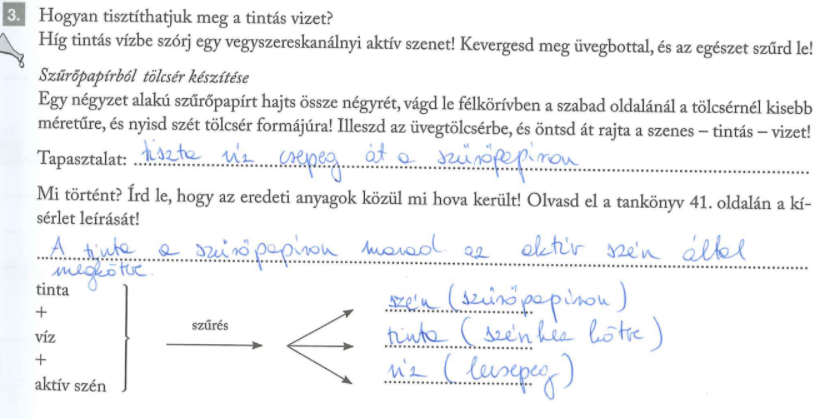 3. Hogyan tisztíthatjuk meg a tintás vizet?
Híg tintás vízbe szórj egy vegyszereskanálnyi aktív szenet! Kevergesd meg üvegbottal, és az egészet szűrd le!
Szűrőpapírból tölcsér készítése
Egy négyzet alakú szűrőpapírt hajts össze négyrét, vágd le félkörívben a szabad oldalánál a tölcsérnél kisebb
méretűre, és nyisd szét tölcsér formájúra! Illeszd az üvegtölcsérbe, és öntsd át rajta a szenes – tintás – vizet!
Tapasztalat: tiszta víz csepeg át a szűrőpapíron
Mi történt? Írd le, hogy az eredeti anyagok közül mi hova került! Olvasd el a tankönyv 41. oldalán a kí-
sérlet leírását!
A tinta a szűrőpapíron marad az aktív szén által
megkötve.
tinta
+
víz
+
aktív szén
szűrés
szén (szűrőpapíron)
tinta (szénhez kötve)
víz (lecsepeg)